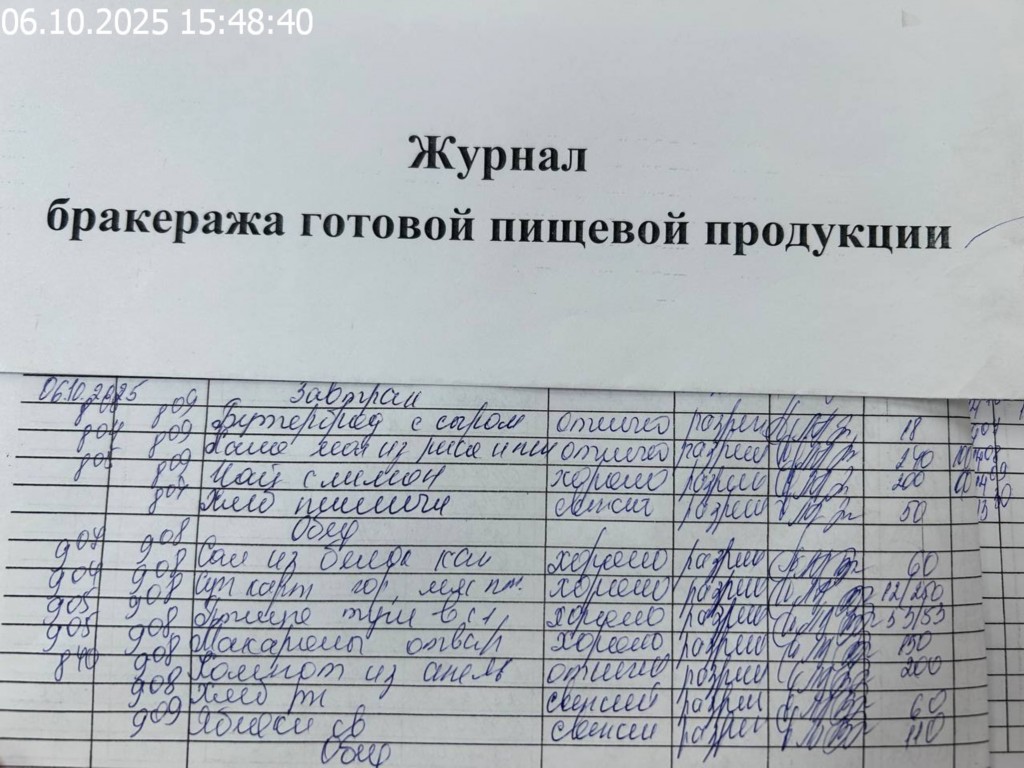 06.10.2025 15:48:40
Журнал
бракеража готовой пищевой продукции
06.10.2025 Завтрак
809 Бутерброд с сыром отлично разреш 18
809 Каша из риса и отлично разреш
805 809 Чай с лимон хорошо разреш 200
Хлеб пшенич свежий разреш 50
Обед
904 908 Сал из белок кап хорошо разреш 60
904 908 Суп карт гор, хорошо разреш 12/250
905 908 хорошо разреш 53/53
905 908 Макароны отвар хорошо разреш 150
840 908 Компот из апель отлично разреш 200
908 Хлеб рж свежий разреш 60
909 Яблоки св свежий разреш 110
Обед